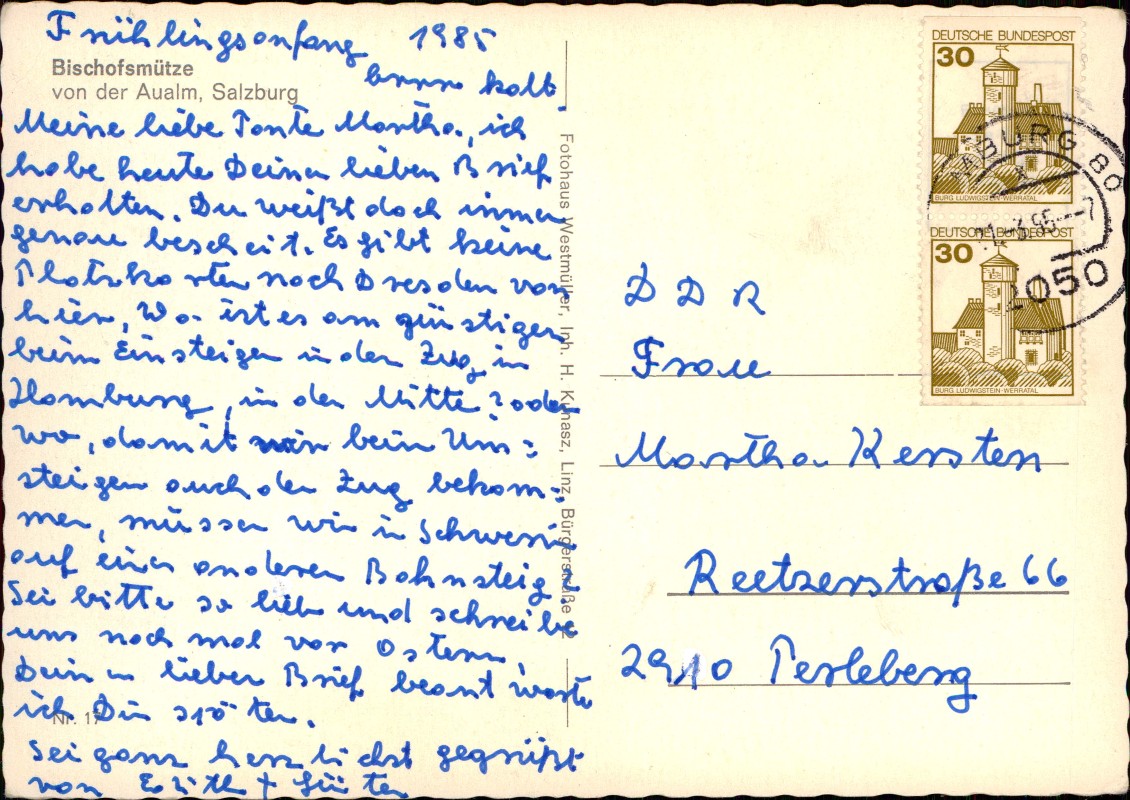 Frühlingsanfang 1985
brrr kalt.
Bischofsmütze
von der Aualm, Salzburg
Meine liebe Tante Martha, ich
habe heute Deinen lieben Brief
erhalten. Du weißt doch immer
genau bescheit. Es gibt keine
Platzkarten nach Dresden von
hier, Wo ist es am günstigen
beim Einsteigen in den Zug in
Hamburg, in der Mitte? oder
wo, damit wir beim Um-
steigen auch den Zug bekom-
men, müssen wir in Schwerin
auf einen anderen Bahnsteig?
Sei bitte so lieb und schreibe
uns noch mal vor Ostern,
Dein lieber Brief beant worte
ich Dir später.
Nr. 17
Sei ganz herzlichst gegrüßt
von Edith + Günter
Fotohaus Westmüller, Inh. H. Kunasz, Linz, Bürgerstraße
DEUTSCHE BUNDESPOST
30
BURG LUDWIGSTEIN-WERRATAL
DEUTSCHE BUNDESPOST
30
BURG LUDWIGSTEIN-WERRATAL
HAMBURG 80
2050
DDR
Frau
Martha Kersten
Reetzerstraße 66
2910 Perleberg